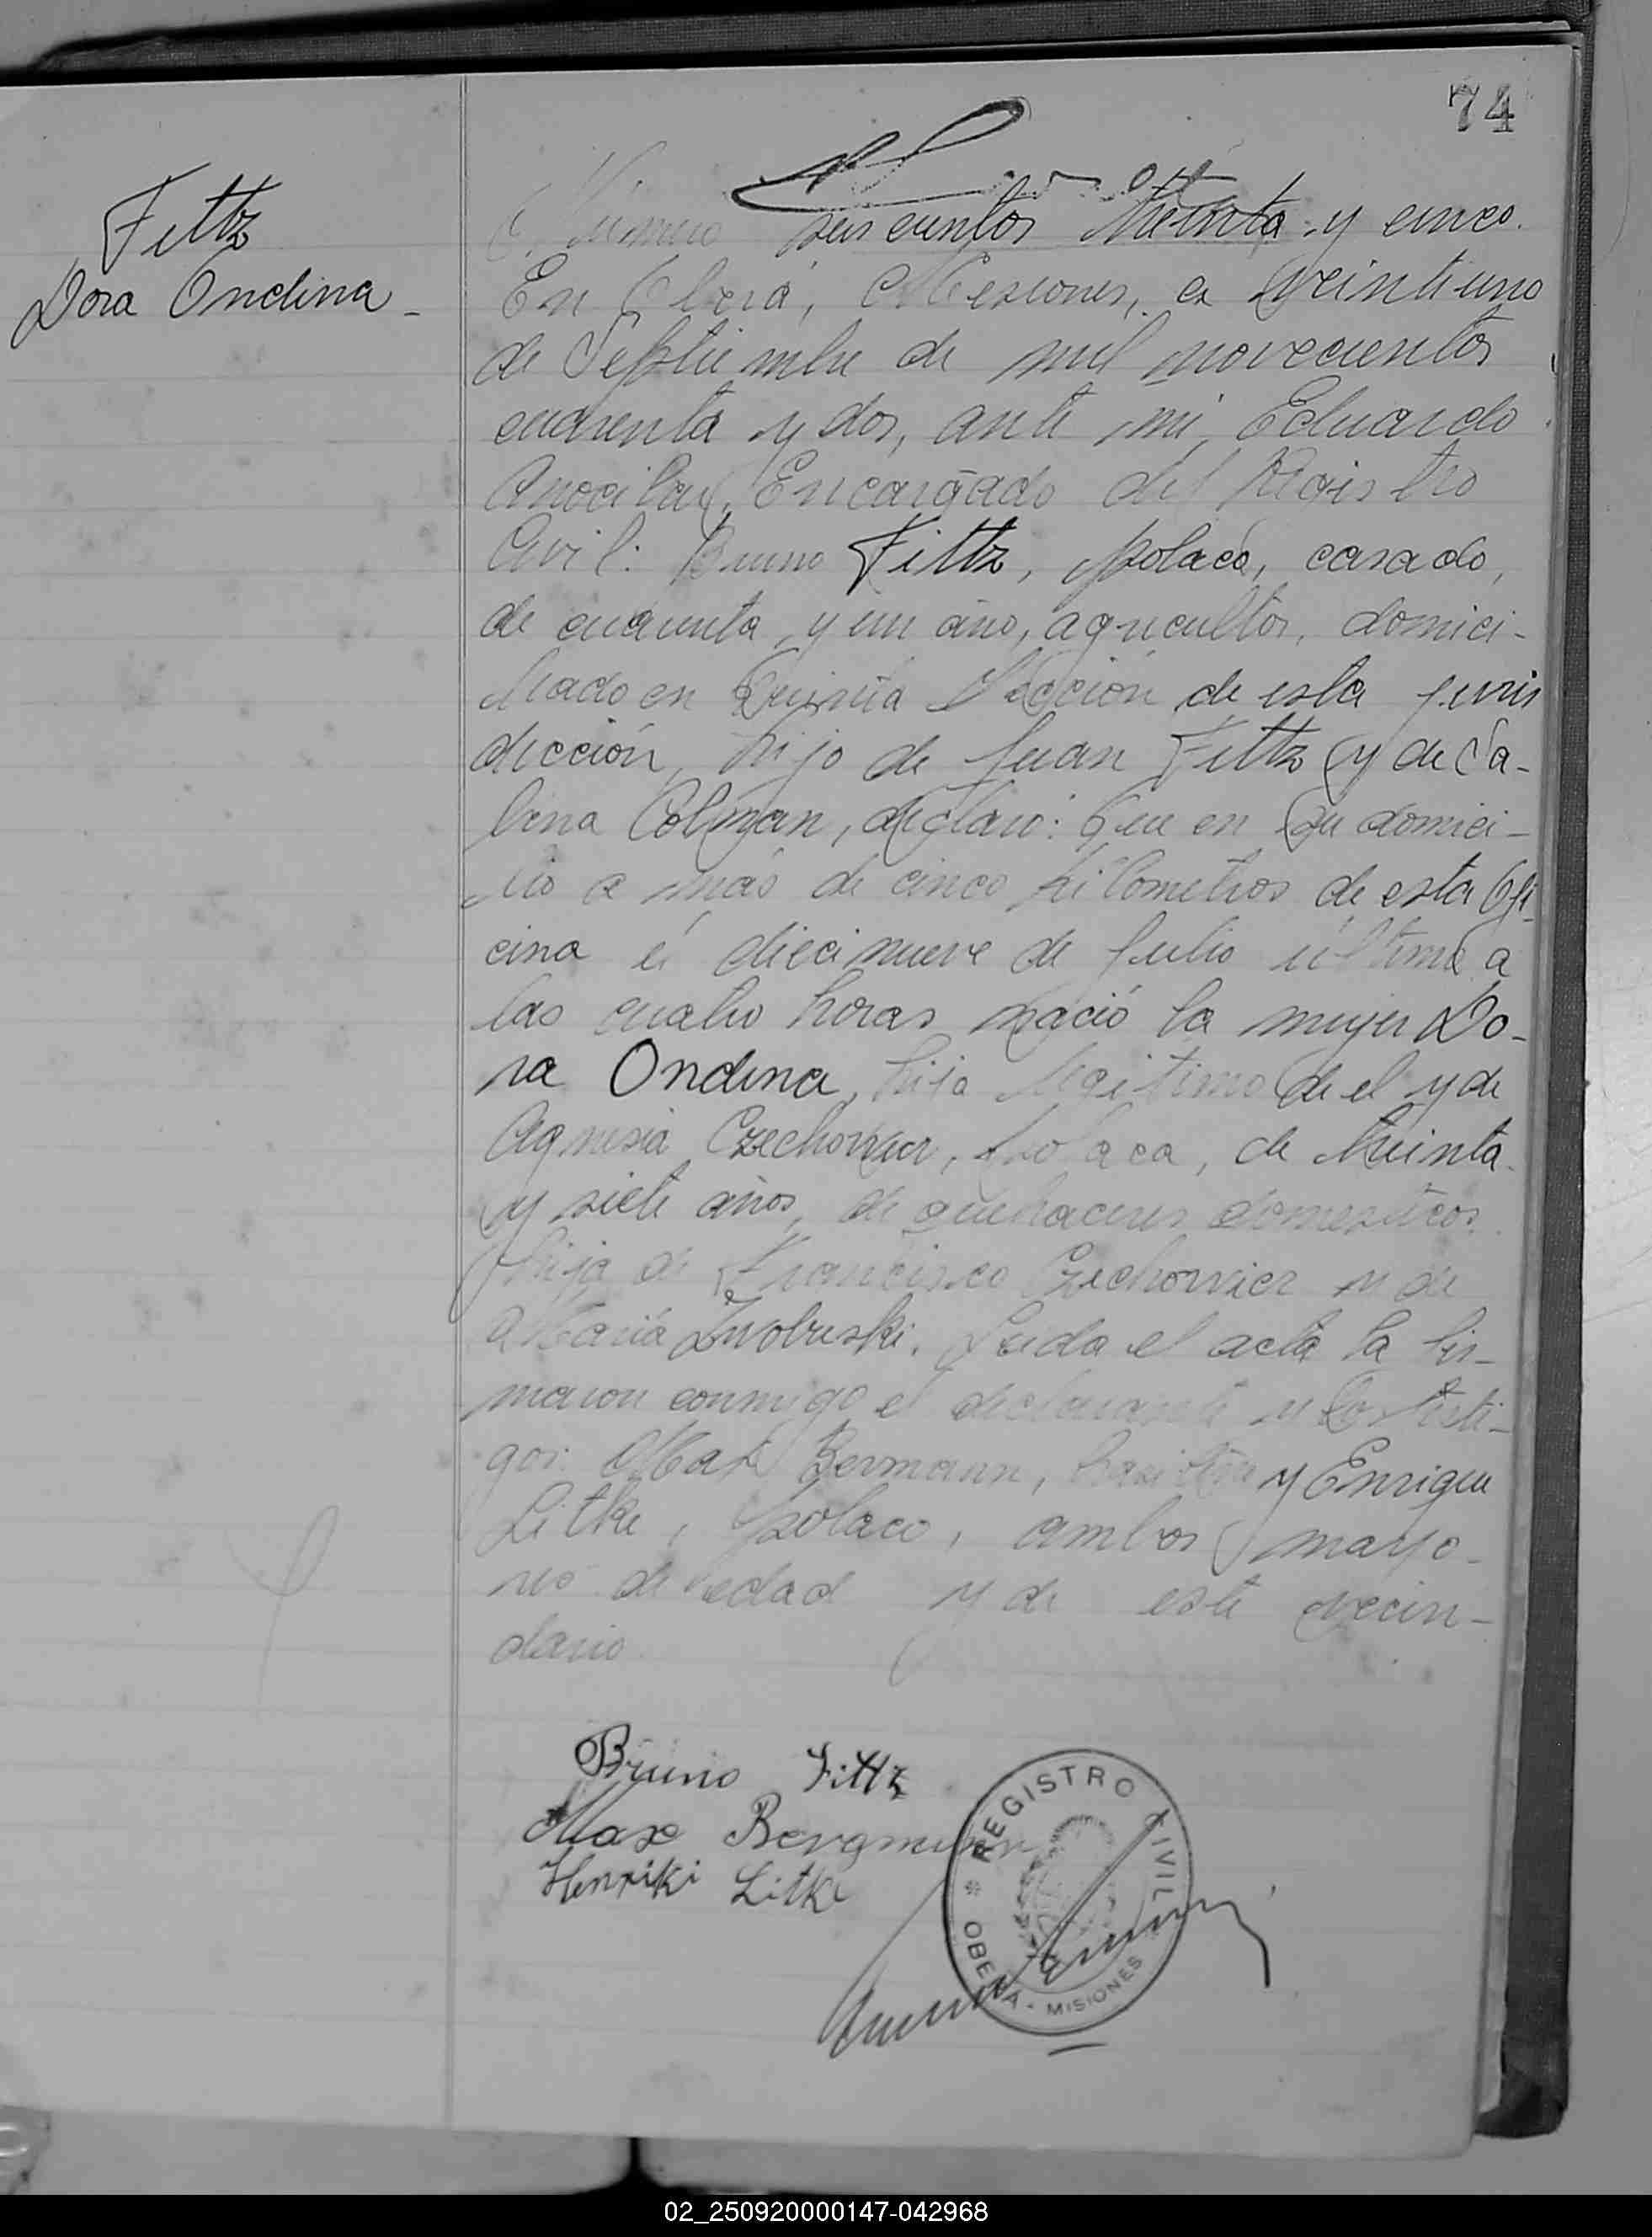 74
Fittz
Dora Ondina -
Número seiscientos treinta y cinco.
En Oberá, Misiones, a veintiuno
de Septiembre de mil novecientos
cuarenta y dos, ante mi, Eduardo
Encargado del Registro
Civil: Bruno Fittz, polaco, casado,
de cuarenta y un año, agricultor, domici-
liado en Quinta Sección de esta juris
dicción, hijo de Juan Fittz y de Sa-
bina Colman, declaró: Que en su domici-
lio a más de cinco kilometros de esta Ofi-
cina el diecinueve de Julio último a
las cuatro horas nació la mujer Do-
ra Ondina, hija legitima de el y de
Agnesia Czechowicz, polaca, de treinta
y siete años, de quehaceres domesticos.
hija de Francisco Czechowicz y de
María Zwolinski. Leida el acta la fir-
maron conmigo el declarante y los testi-
gos: Max Bermann, y Enrique
Litke, polaco, ambos mayo-
res de edad y de este vecin-
dario
Bruno Fittz
Max Bergmann
Henriki Litke
REGISTRO CIVIL
OBERA - MISIONES
02_250920000147-042968